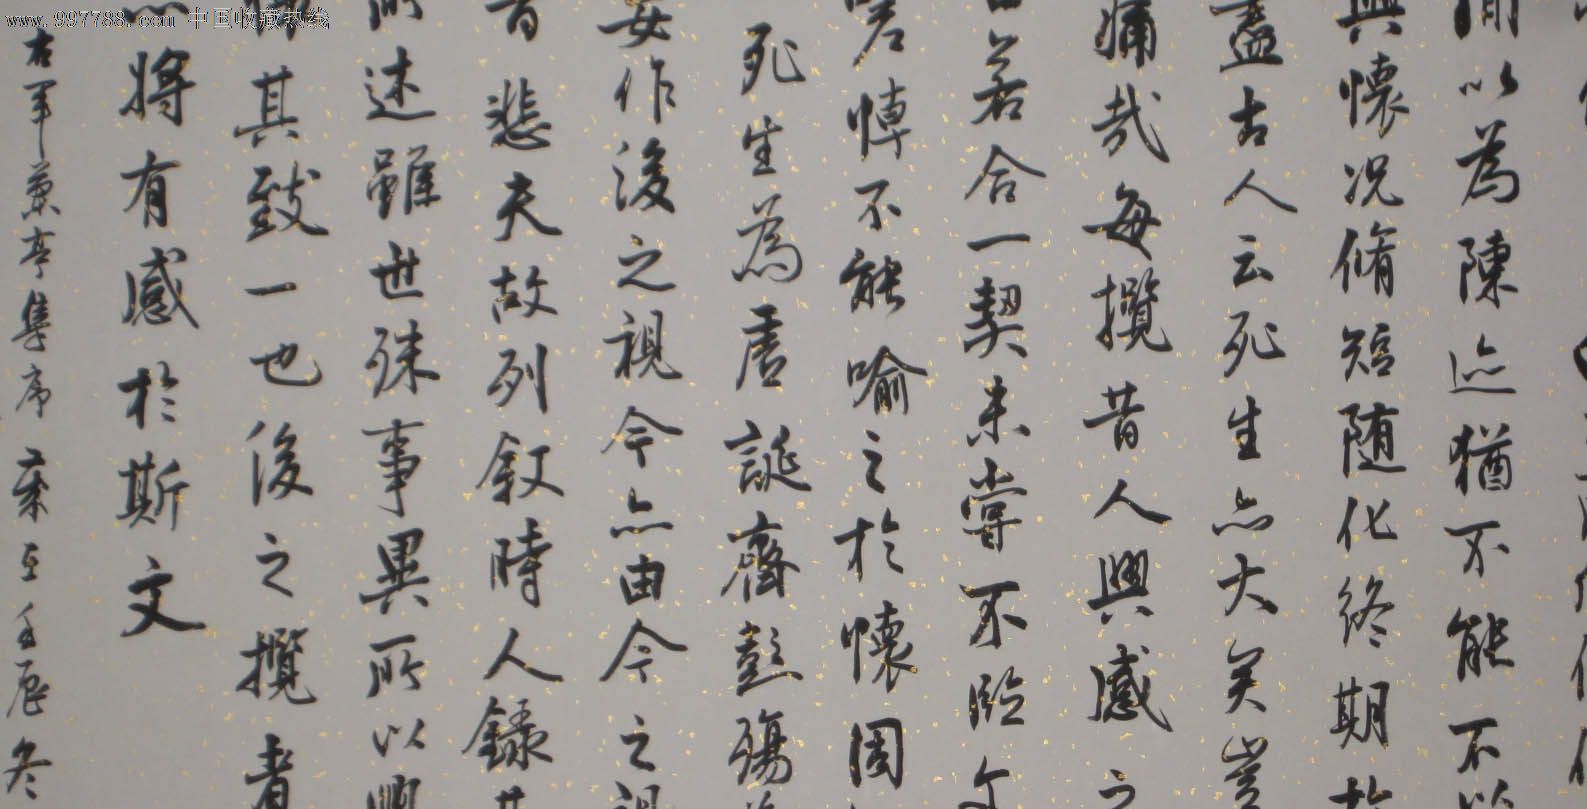 以為陳迹猶不能不以
興懷况脩短随化終期於
盡古人云死生亦大矣豈
痛哉每攬昔人興感之
若合一契未嘗不臨文
嗟悼不能喻之於懷固
死生為虚誕齊彭殤為
妄作後之視今亦由今之視
昔悲夫故列叙時人録其
所述雖世殊事異所以興
其致一也後之攬者
亦將有感於斯文
右軍蘭亭集序 歲 壬辰冬
www.997788.com 中国收藏热线